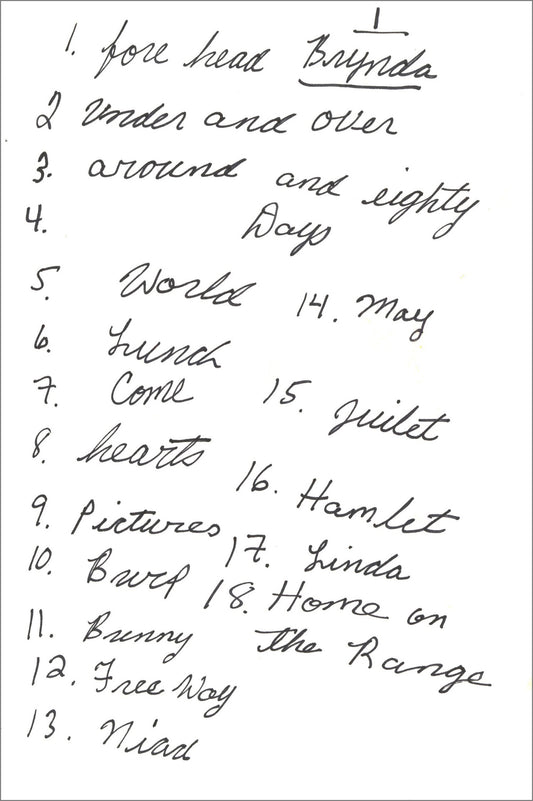 1
1. fore head Brynda
2 Under and over
3. around and eighty
4. Days
5. World
14. May
6. Lunch
7. Come
15. Juilet
8. hearts
16. Hamlet
9. Pictures
17. Linda
10. Burp
18. Home on
the Range
11. Bunny
12. Free Way
13. Niad